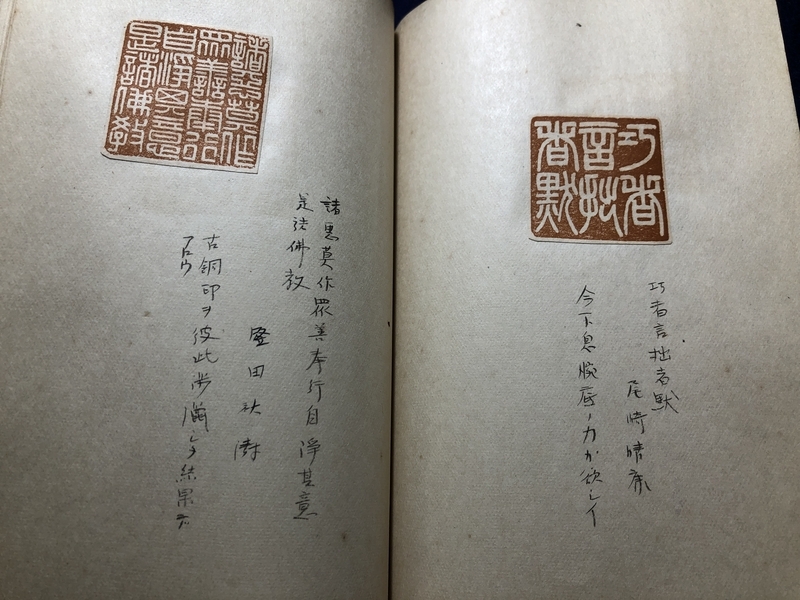 巧者
言拙
者默
巧者言拙者默
尾崎晴
今一息腕底ノ力ガ欲シイ
諸惡莫作
眾善奉行
自淨其意
是諸佛教
諸悪莫作眾善奉行自淨其意
是諸佛教
田秋濤
古銅印ヲ彼此渉シタ結果ガ